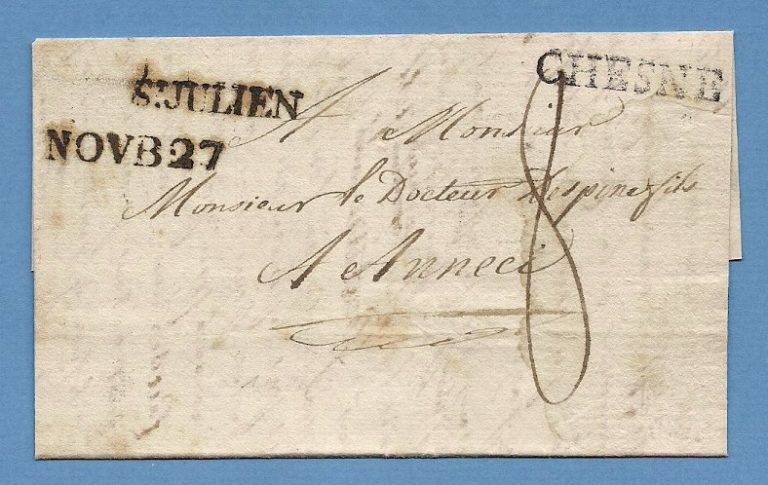 ST JULIEN
NOVB 27
CHESNE
A Monsieur
Monsieur le Docteur Despine fils
A Anneci
8